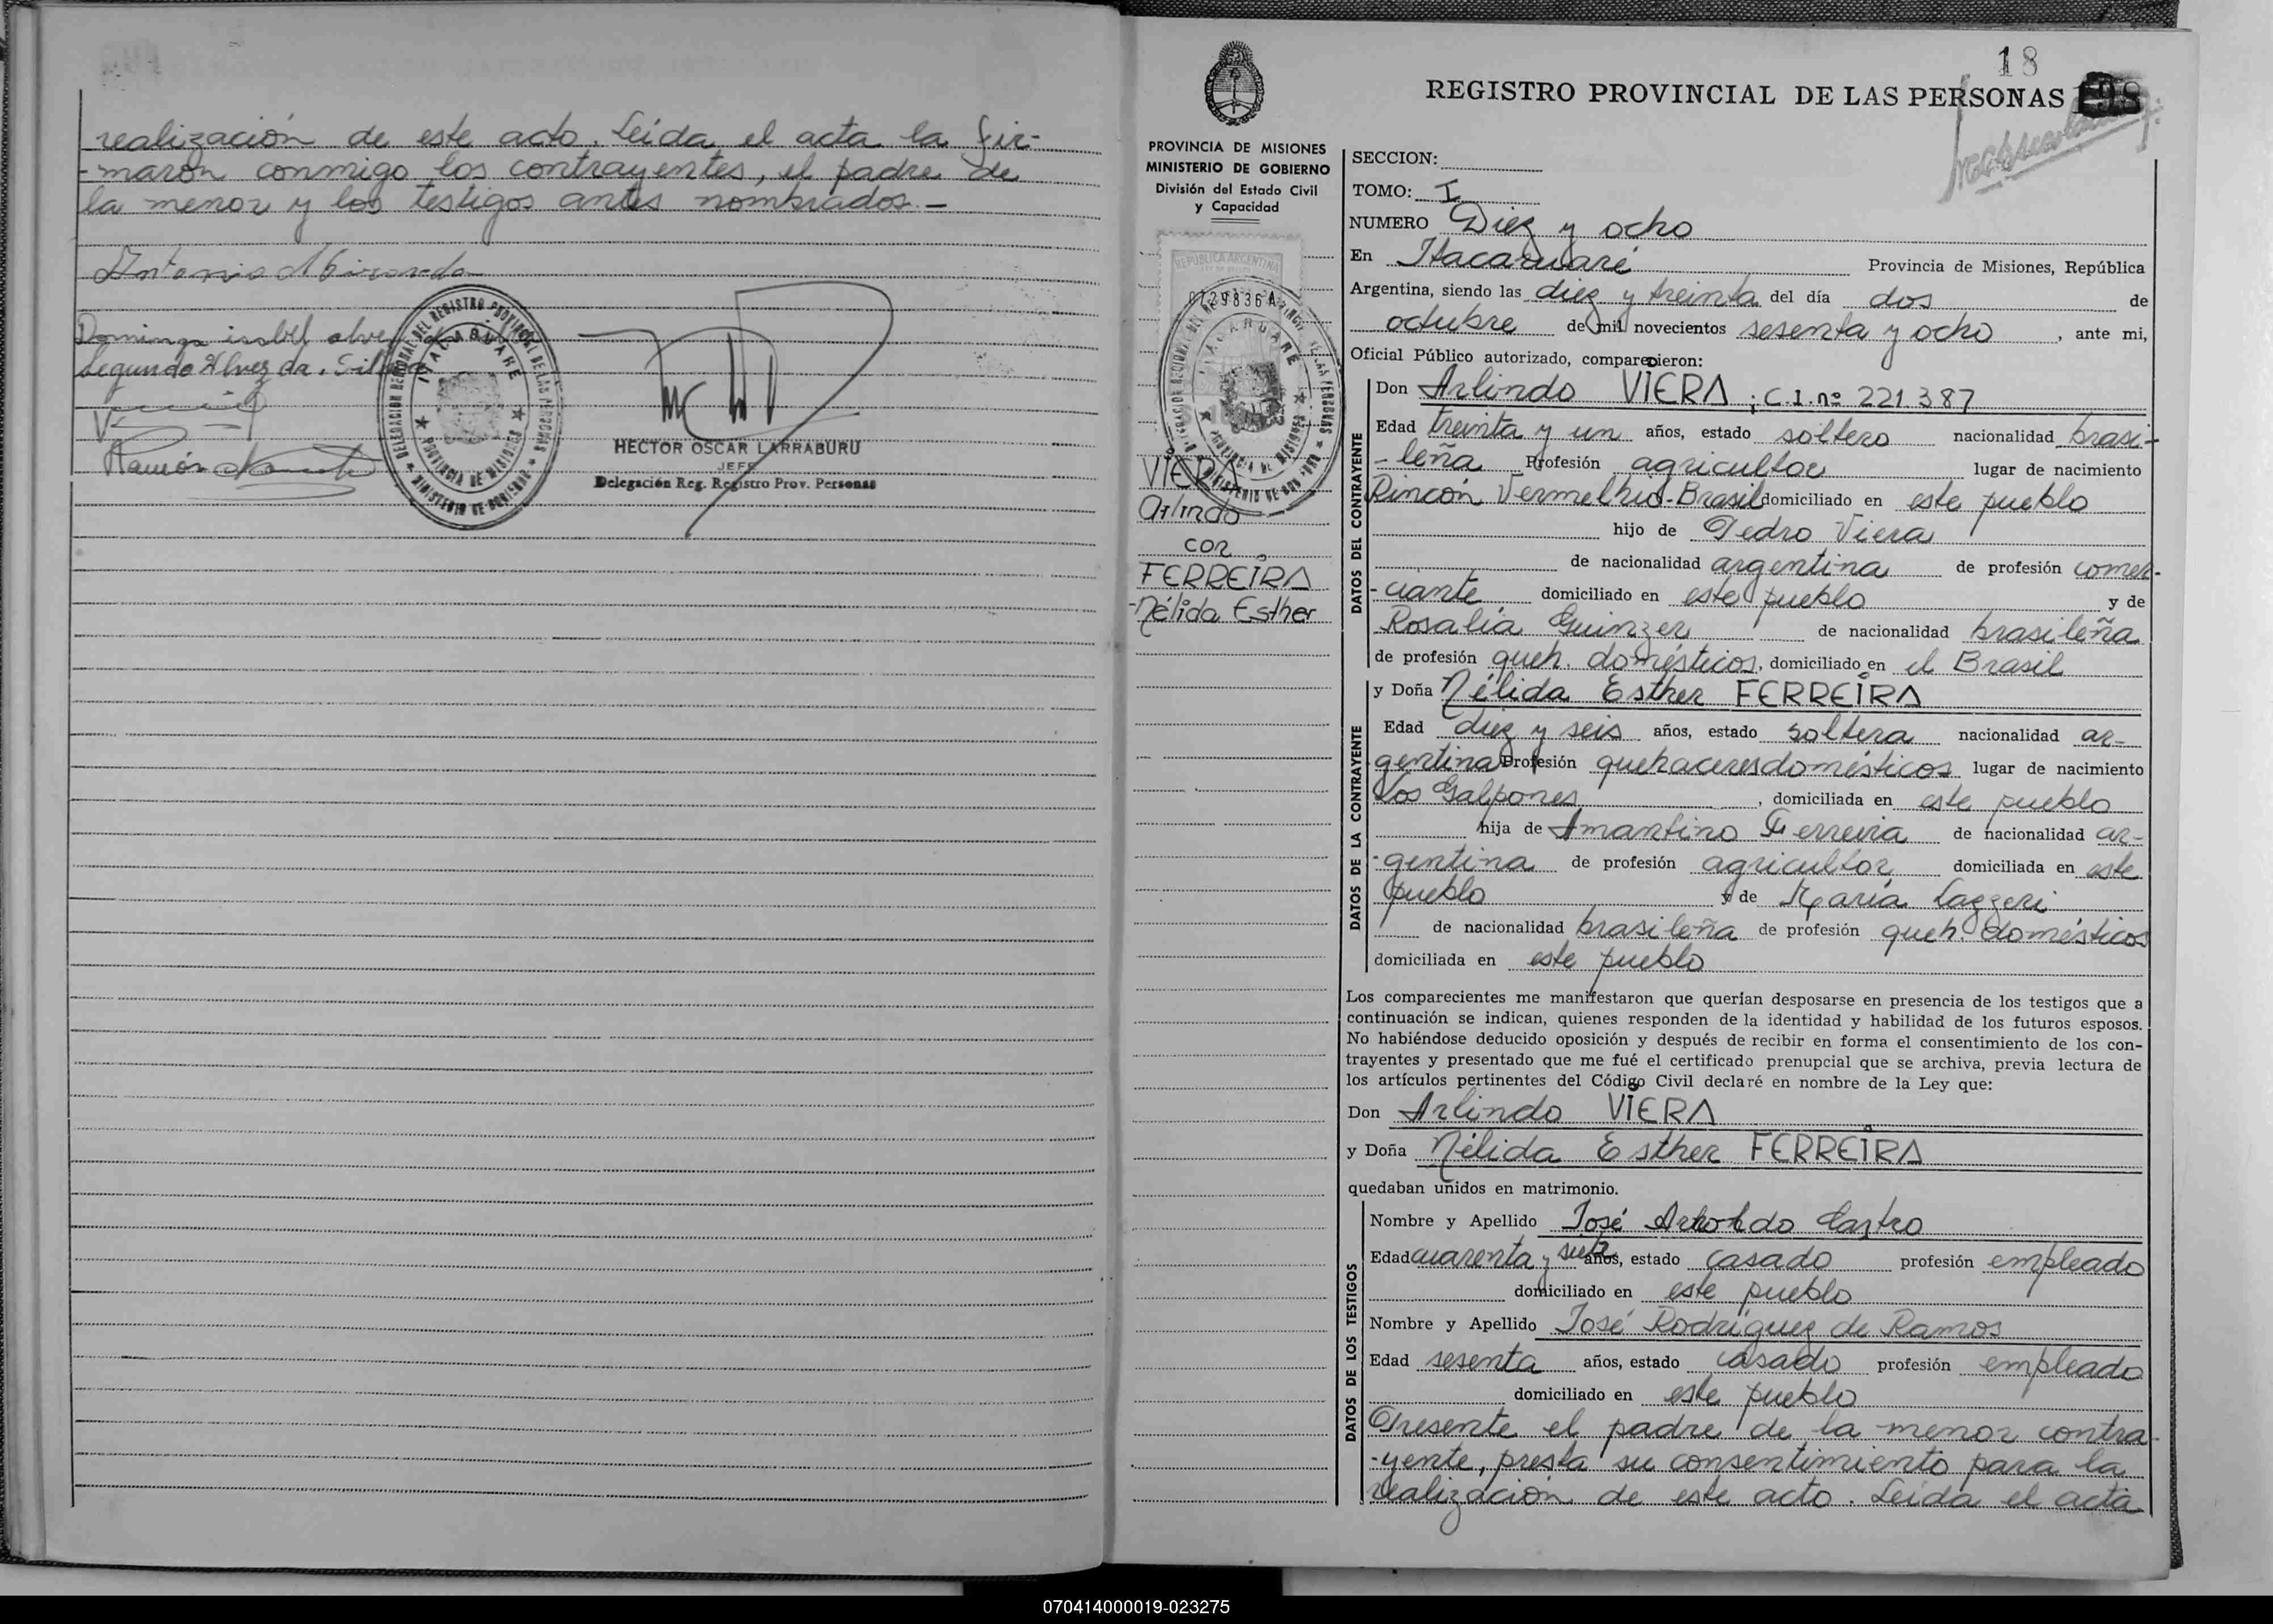 realización de este acto. Leída el acta la fir-
-maron conmigo los contrayentes, el padre de
la menor y los testigos antes nombrados.-
Antonio
Dominga isabel alve
Segundo Alvez da. Silva
Ramón
DELEGACION REGIONAL DEL REGISTRO PROVINCIAL DE LAS PERSONAS
ITACARUARE
PROVINCIA DE MISIONES
MINISTERIO DE GOBIERNO
HECTOR OSCAR LARRABURU
JEFE
Delegación Reg. Registro Prov. Personas
18
REGISTRO PROVINCIAL DE LAS PERSONAS 198
PROVINCIA DE MISIONES
MINISTERIO DE GOBIERNO
División del Estado Civil
y Capacidad
REPUBLICA ARGENTINA
0729836A
ITACARUARE
PROVINCIA DE MISIONES
VIERA
Arlindo
con
FERREIRA
-Nélida Esther
SECCION:
TOMO: I
NUMERO Diez y ocho
En Itacaruaré Provincia de Misiones, República
Argentina, siendo las diez y treinta del día dos de
octubre de mil novecientos sesenta y ocho, ante mi,
Oficial Público autorizado, comparecieron:
DATOS DEL CONTRAYENTE
Don Arlindo VIERA ; C.I. nº 221.387
Edad treinta y un años, estado soltero nacionalidad brasi-
-leña Profesión agricultor lugar de nacimiento
Rincón Vermelhio-Brasil domiciliado en este pueblo
hijo de Pedro Viera
de nacionalidad argentina de profesión comer-
-ciante domiciliado en este pueblo y de
Rosalia Guinzer de nacionalidad brasileña
de profesión queh. domésticos, domiciliado en el Brasil
DATOS DE LA CONTRAYENTE
y Doña Nélida Esther FERREIRA
Edad diez y seis años, estado soltera nacionalidad ar-
gentina Profesión quehaceres domésticos lugar de nacimiento
Los Galpones, domiciliada en este pueblo
hija de Amantino Ferreira de nacionalidad ar-
-gentina de profesión agricultor domiciliada en este
pueblo y de María Lazzeri
de nacionalidad brasileña de profesión queh. domésticos
domiciliada en este pueblo
Los comparecientes me manifestaron que querían desposarse en presencia de los testigos que a
continuación se indican, quienes responden de la identidad y habilidad de los futuros esposos.
No habiéndose deducido oposición y después de recibir en forma el consentimiento de los con-
trayentes y presentado que me fué el certificado prenupcial que se archiva, previa lectura de
los artículos pertinentes del Código Civil declaré en nombre de la Ley que:
Don Arlindo VIERA
y Doña Nélida Esther FERREIRA
quedaban unidos en matrimonio.
DATOS DE LOS TESTIGOS
Nombre y Apellido José Castro
Edad cuarenta y siete años, estado casado profesión empleado
domiciliado en este pueblo
Nombre y Apellido José Rodríguez de Ramos
Edad sesenta años, estado casado profesión empleado
domiciliado en este pueblo
Presente el padre de la menor contra-
-yente, presta su consentimiento para la
realización de este acto. Leída el acta
070414000019-023275